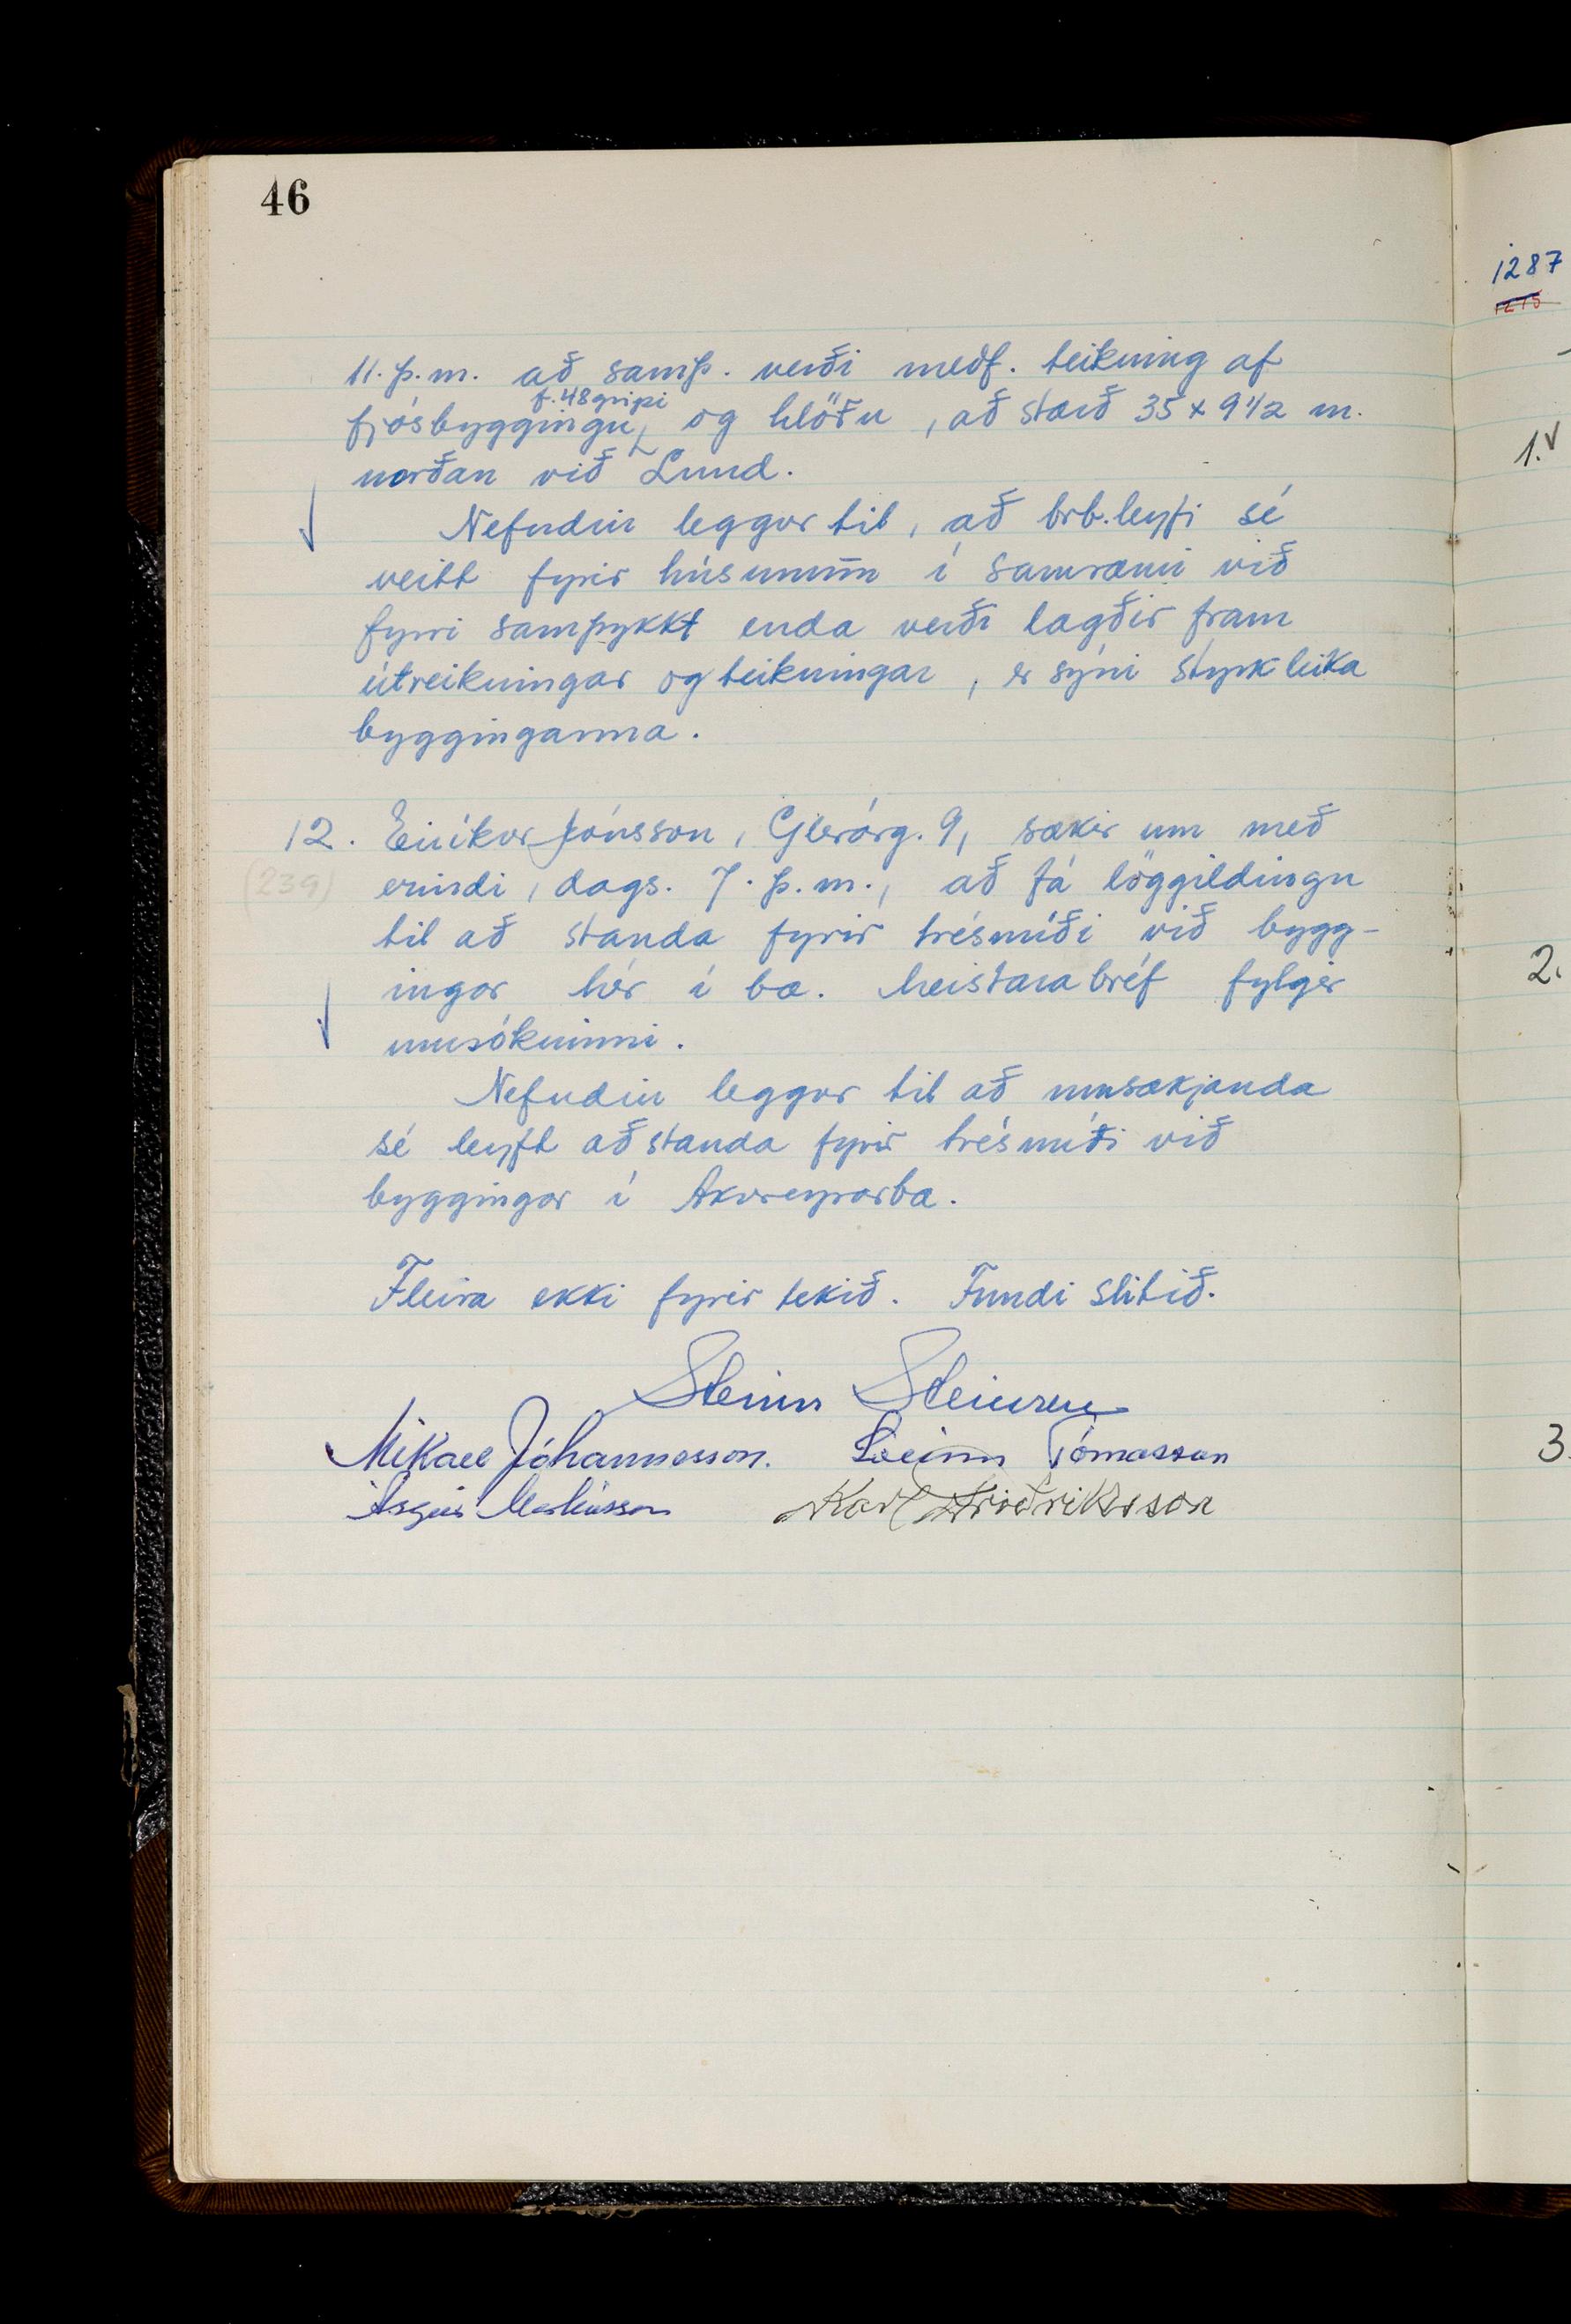 46
11. þ.m. að samþ. verði meðf. teikning af
f. 48 gripi
fjósbyggingu, og hlöðu, að stærð 35 x 9 1/2 m.
norðan við Lund.
Nefndin leggur til, að brb.leyfi sé
veitt fyrir húsunum í samræmi við
fyrri samþykkt enda verði lagðir fram
útreikningar og teikningar, er sýni styrkleika
bygginganna.
12. Eiríkur Jónsson, Glerárg. 9, sækir um með
(239) erindi, dags. 7. þ.m., að fá löggildingu
til að standa fyrir trésmíði við bygg-
ingar hér í bæ. Meistarabréf fylgir
umsókninni.
Nefndin leggur til að umsækjanda
sé leyft að standa fyrir trésmíði við
byggingar í Akureyrarbæ.
Fleira ekki fyrir tekið. Fundi slitið.
Steinn Steinsen
Mikael Jóhannesson. Sveinn Tómasson
Ásgeir Markússon Karl Friðriksson
1287
1275
1.
2.
3.